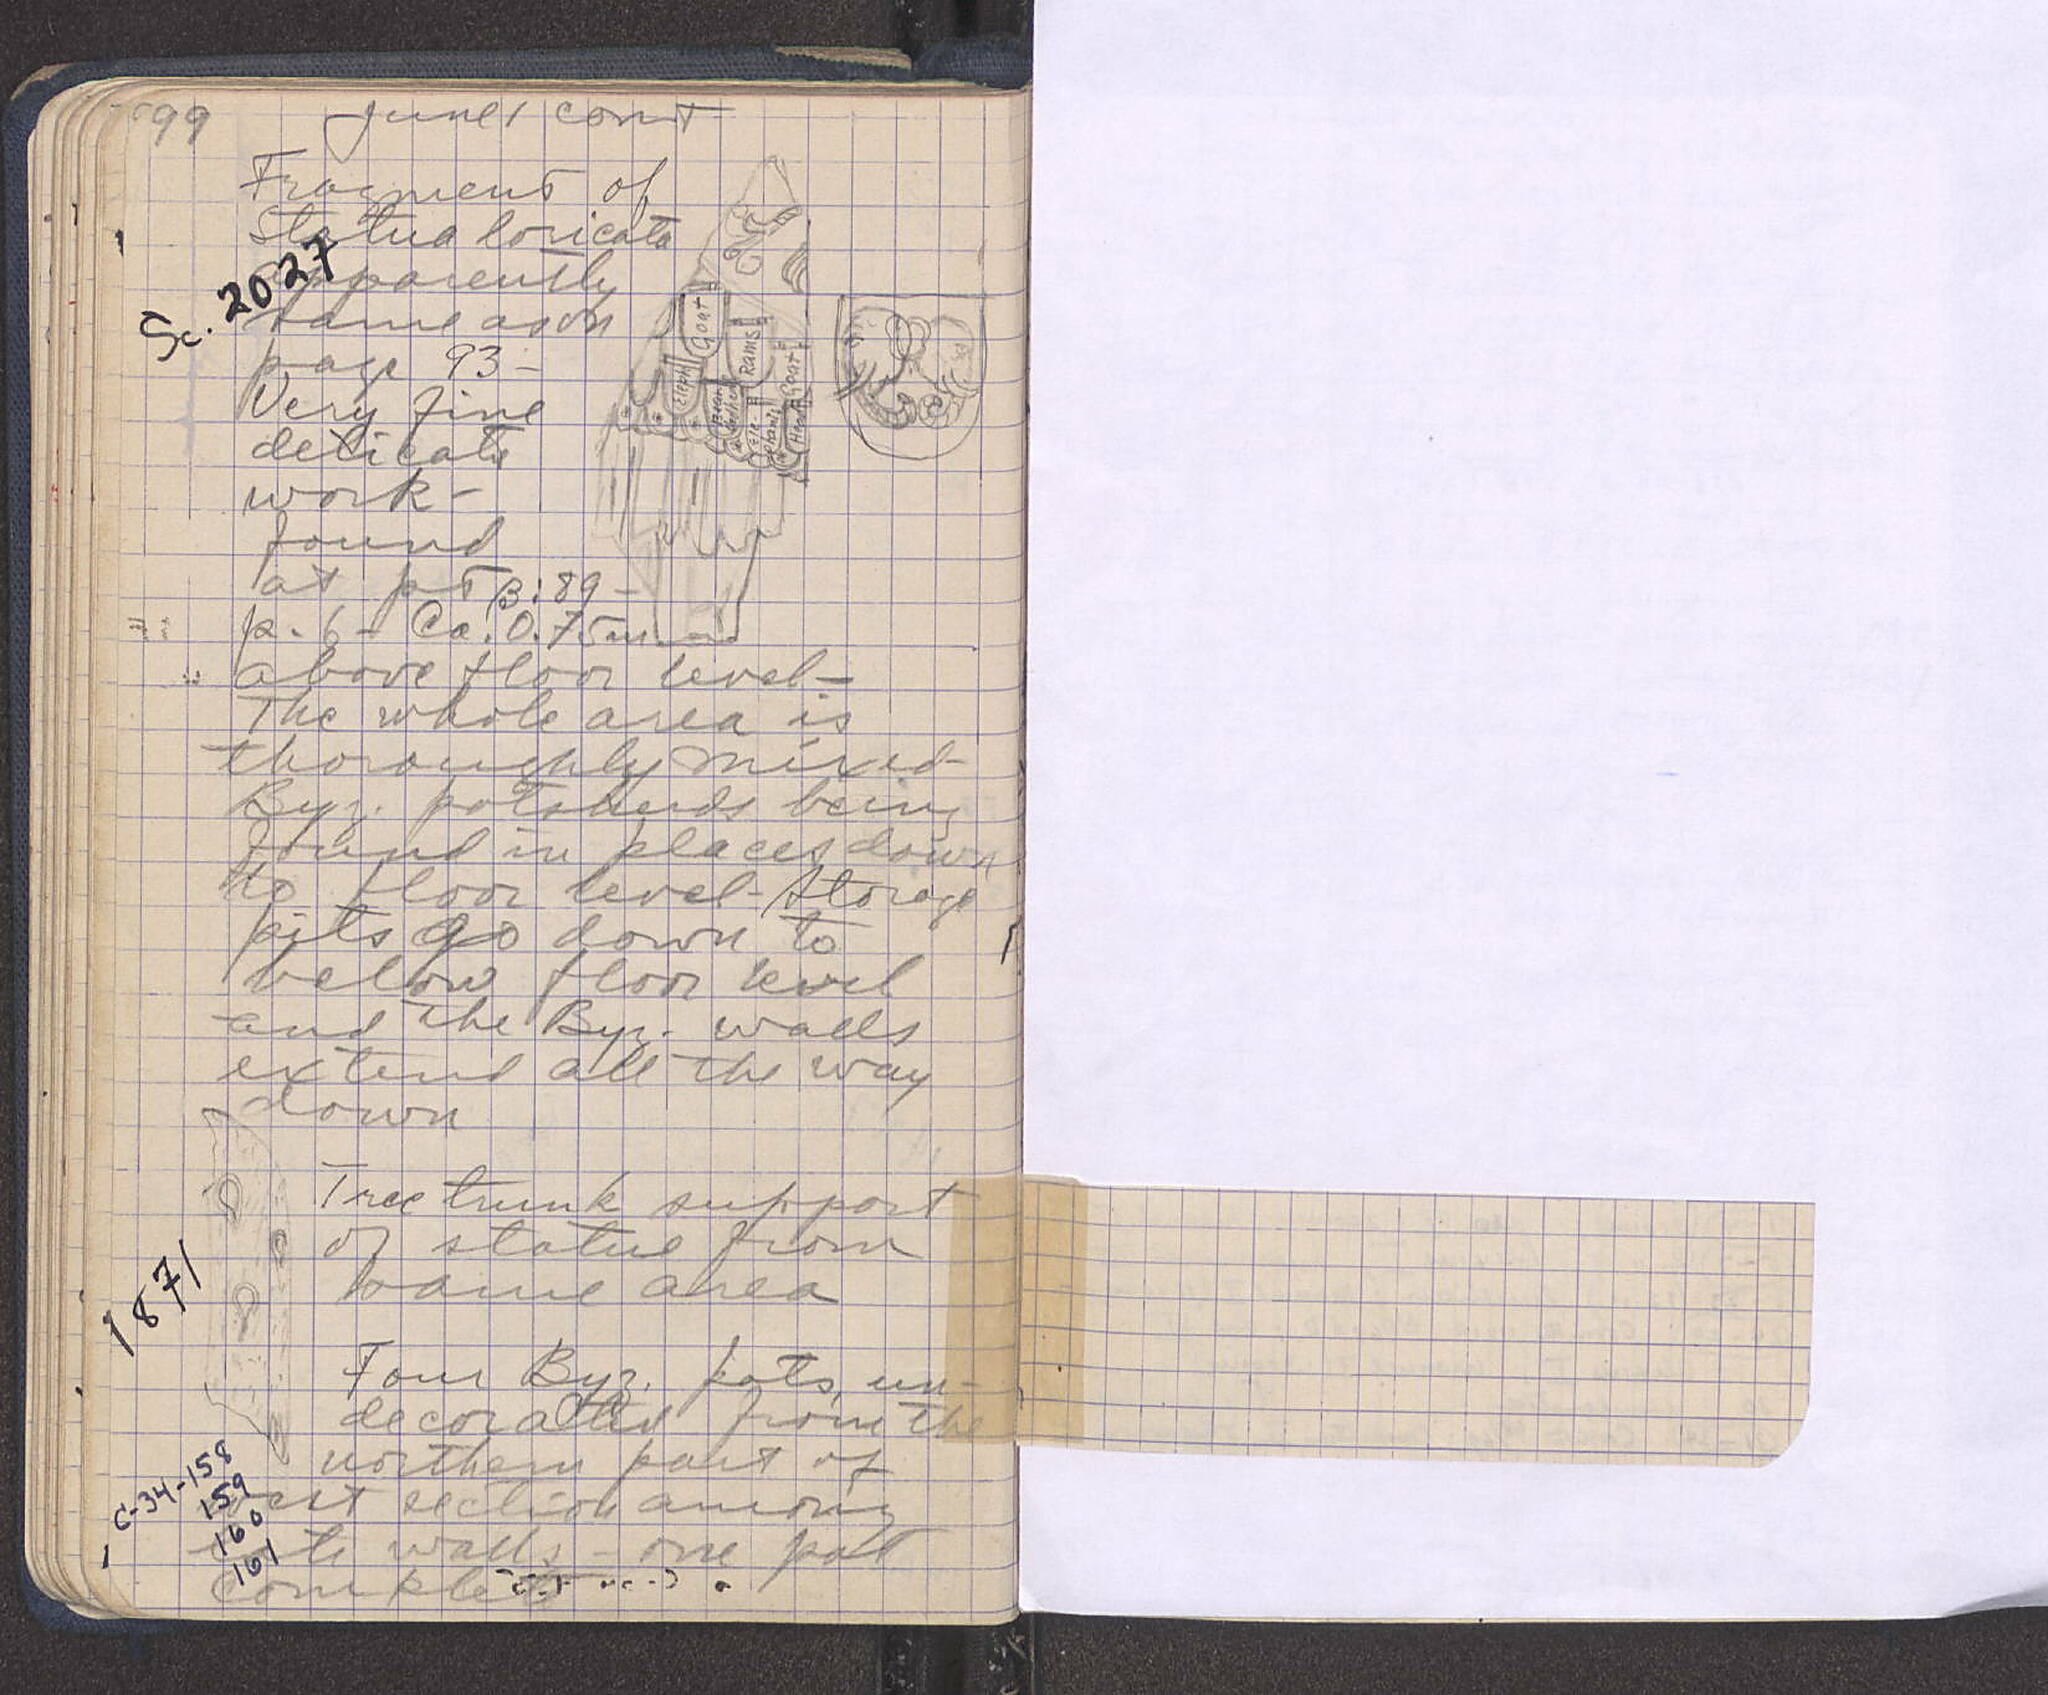 99
June 1 con't
Fragment of
Statua loricata
apparently
same as on
page 93 -
Very fine
delicate
work -
found
at pt B:89 -
p. 6 - Ca. 0.75m
above floor level -
The whole area is
thoroughly mixed -
Byz. potsherds being
found in places down
to floor level - Storage
pits go down to
below floor level
and the Byz. walls
extend all the way
down
Sc. 2027
Goat
Eleph
Rams
Goat
Ele-
phant
Head
Tree trunk support
of statue from
same area
1871
Four Byz. pots, un-
decorated from the
northern part of
west section among
walls - one pot
complete
C-34-158
159
160
161